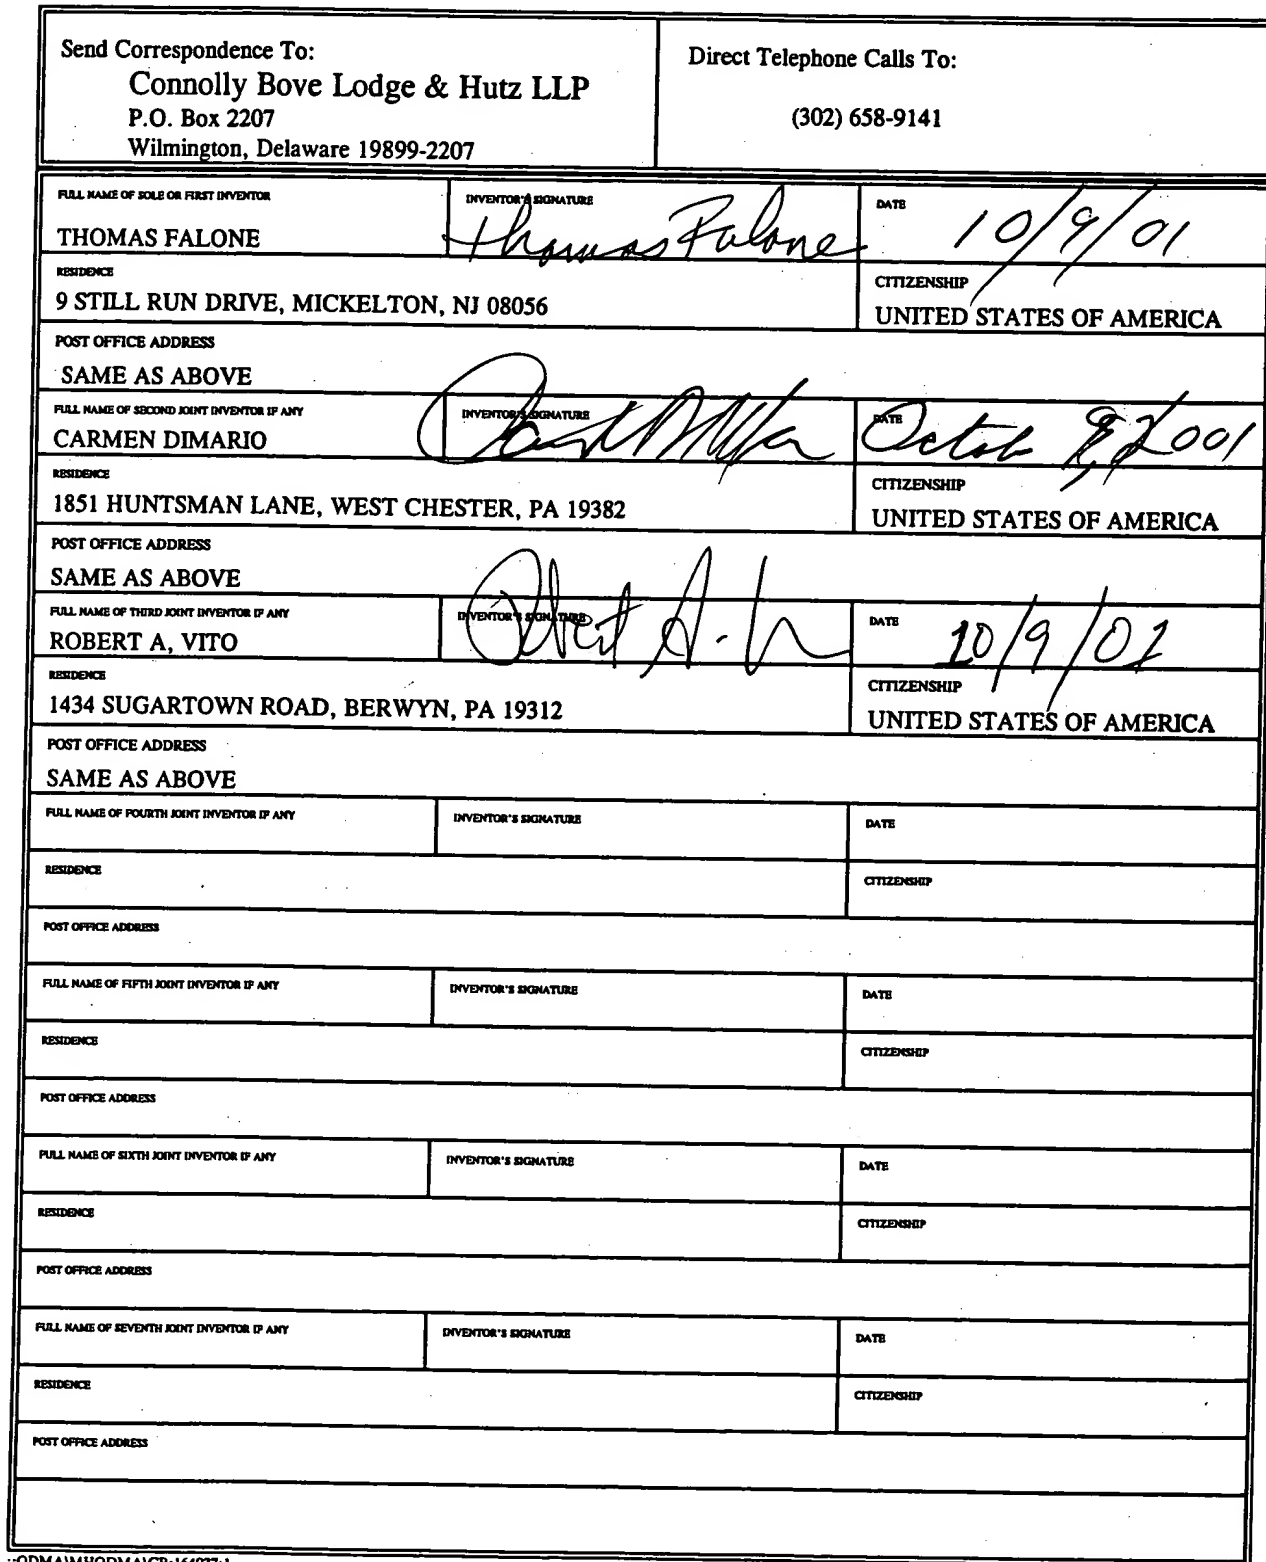 Send Correspondence To:
Connolly Bove Lodge & Hutz LLP
P.O. Box 2207
Wilmington, Delaware 19899-2207
Direct Telephone Calls To:
(302) 658-9141
FULL NAME OF SOLE OR FIRST INVENTOR
INVENTOR'S SIGNATURE
DATE
THOMAS FALONE
Thomas Falone
10/9/01
RESIDENCE
CITIZENSHIP
9 STILL RUN DRIVE, MICKELTON, NJ 08056
UNITED STATES OF AMERICA
POST OFFICE ADDRESS
SAME AS ABOVE
FULL NAME OF SECOND JOINT INVENTOR IF ANY
INVENTOR'S SIGNATURE
DATE
CARMEN DIMARIO
2001
RESIDENCE
CITIZENSHIP
1851 HUNTSMAN LANE, WEST CHESTER, PA 19382
UNITED STATES OF AMERICA
POST OFFICE ADDRESS
SAME AS ABOVE
FULL NAME OF THIRD JOINT INVENTOR IF ANY
INVENTOR'S SIGNATURE
DATE
ROBERT A, VITO
10/9/01
RESIDENCE
CITIZENSHIP
1434 SUGARTOWN ROAD, BERWYN, PA 19312
UNITED STATES OF AMERICA
POST OFFICE ADDRESS
SAME AS ABOVE
FULL NAME OF FOURTH JOINT INVENTOR IF ANY
INVENTOR'S SIGNATURE
DATE
RESIDENCE
CITIZENSHIP
POST OFFICE ADDRESS
FULL NAME OF FIFTH JOINT INVENTOR IF ANY
INVENTOR'S SIGNATURE
DATE
RESIDENCE
CITIZENSHIP
POST OFFICE ADDRESS
FULL NAME OF SIXTH JOINT INVENTOR IF ANY
INVENTOR'S SIGNATURE
DATE
RESIDENCE
CITIZENSHIP
POST OFFICE ADDRESS
FULL NAME OF SEVENTH JOINT INVENTOR IF ANY
INVENTOR'S SIGNATURE
DATE
RESIDENCE
CITIZENSHIP
POST OFFICE ADDRESS